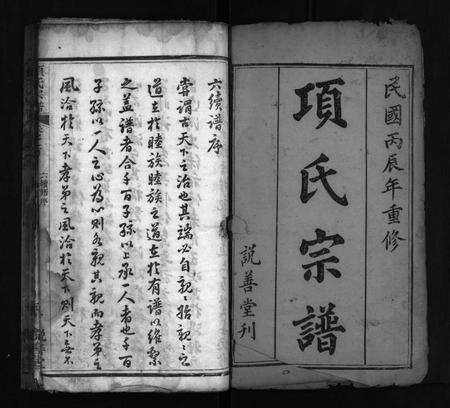 民國丙辰年重修
項氏宗譜
說善堂刊
六續譜序
嘗謂古天下之治也其端必自親親始親親之
道在於睦族睦族之道在於有譜以維繫
之蓋譜者合千百子孫以上承一人者也千百
子孫以一人之心為心則各親其親而孝弟之
風洽於天下孝弟之風洽於天下則天下無不